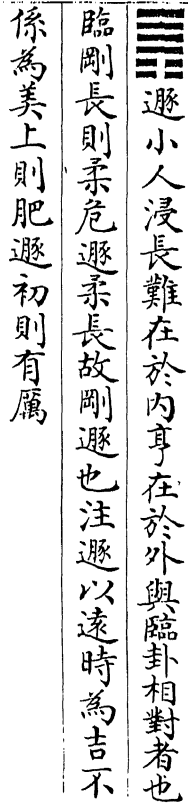 ䷠遯小人浸長難在於內亨在於外與臨卦相對者也
臨剛長則柔危遯柔長故剛遯也注遯以遠時為吉不
係為美上則肥遯初則有厲